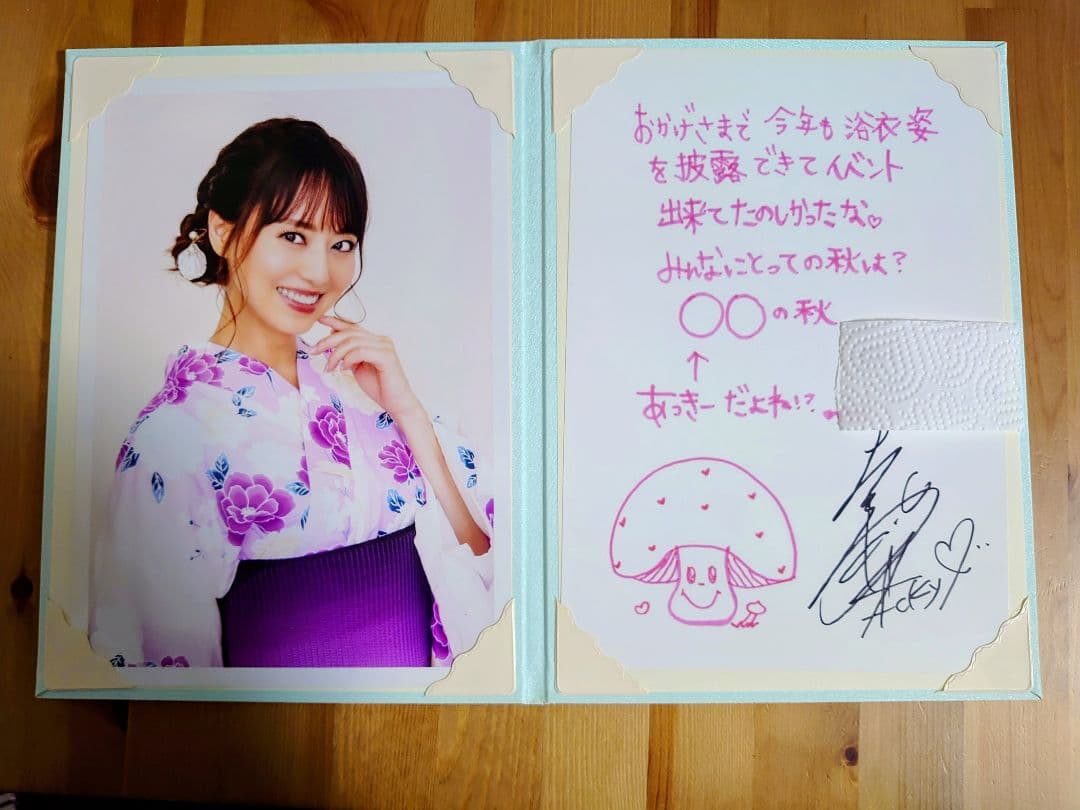 おかげさまで 今年も 浴衣姿
を披露できてイベント
出来てたのしかったな♡
みんなにとっての秋は?
○○の秋
↑
あっきーだよね!?
Acky